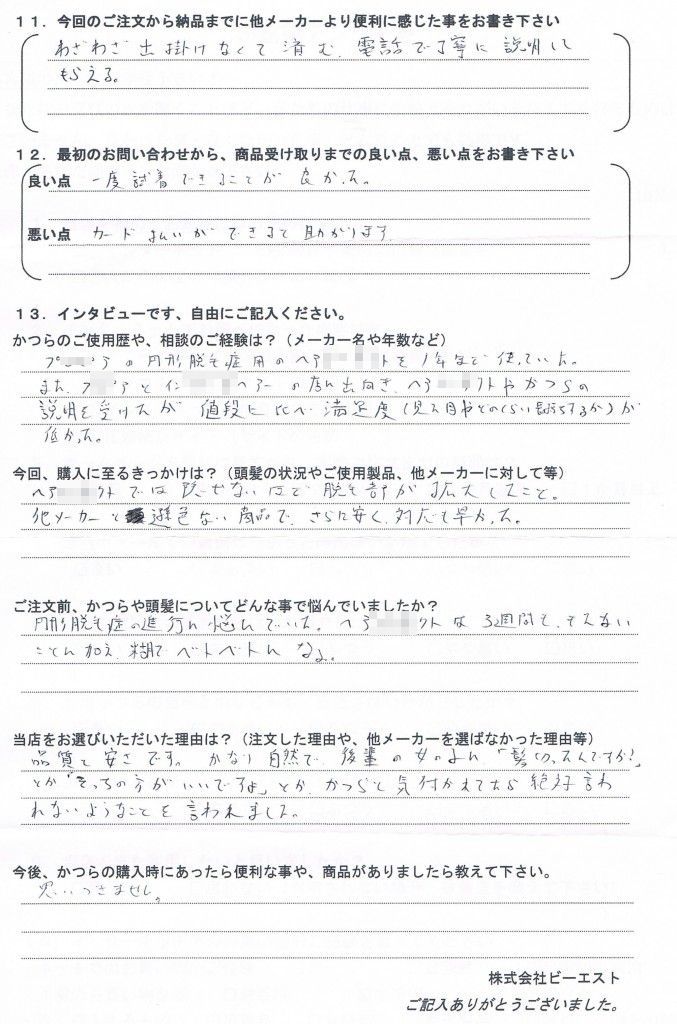 11．今回のご注文から納品までに他メーカーより便利に感じた事をお書き下さい
わざわざ出掛けなくて済む、電話で丁寧に説明して
もらえる。
12．最初のお問い合わせから、商品受け取りまでの良い点、悪い点をお書き下さい
良い点 一度試着できることが良かった。
悪い点 カード払いができると助かります
13．インタビューです、自由にご記入ください。
かつらのご使用歴や、相談のご経験は？（メーカー名や年数など）
の円形脱毛症用のヘア トを1年ほど使っていた。
また、 と の店に出向き、ヘア フトやかつらの
説明を受けたが値段に比べ満足度（見た目やどのくらい長持ちするか）が
低かった。
今回、購入に至るきっかけは？（頭髪の状況やご使用製品、他メーカーに対して等）
ヘア フトでは隠せないほど脱毛部が拡大したこと。
他メーカーと遜色ない商品で、さらに安く、対応も早かった。
ご注文前、かつらや頭髪についてどんな事で悩んでいましたか？
円形脱毛症の進行に悩んでいた。ヘア フトは3週間も、もたない
ことに加え、糊でベトベトになる。
当店をお選びいただいた理由は？（注文した理由や、他メーカーを選ばなかった理由等）
品質と安さです。かなり自然で、後輩の女の子に「髪切ったんですか？」
とか「そっちの方がいいですよ」とか、かつらと気付かれてたら絶対言わ
れないようなことを言われました。
今後、かつらの購入時にあったら便利な事や、商品がありましたら教えて下さい。
思いつきません。
株式会社ビーエスト
ご記入ありがとうございました。